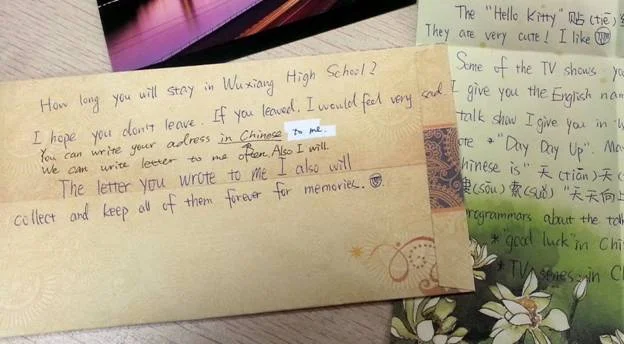 How long you will stay in Wuxiang High School?
I hope you don't leave. If you leaved. I would feel very sad
You can write your adress in Chinese to me.
We can write letter to me often. Also I will.
The letter you wrote to me I also will
collect and keep all of them forever for memories.
The "Hello Kitty" 贴 (tiē)
They are very cute! I like
Some of the TV shows. yo
I give you the English nam
talk show I give you in
"Day Day Up". Ma
hinese is" 天 (tiān) 天
(sōu) 索 (suǒ) "天天向上
rogrammars about the tal
*"good luck" in Chi
*TV series in C